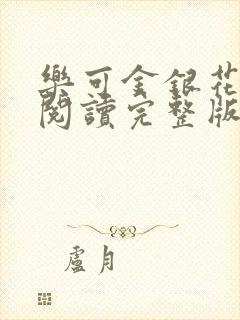 樂可金銀花
閱讀完整版
盧月